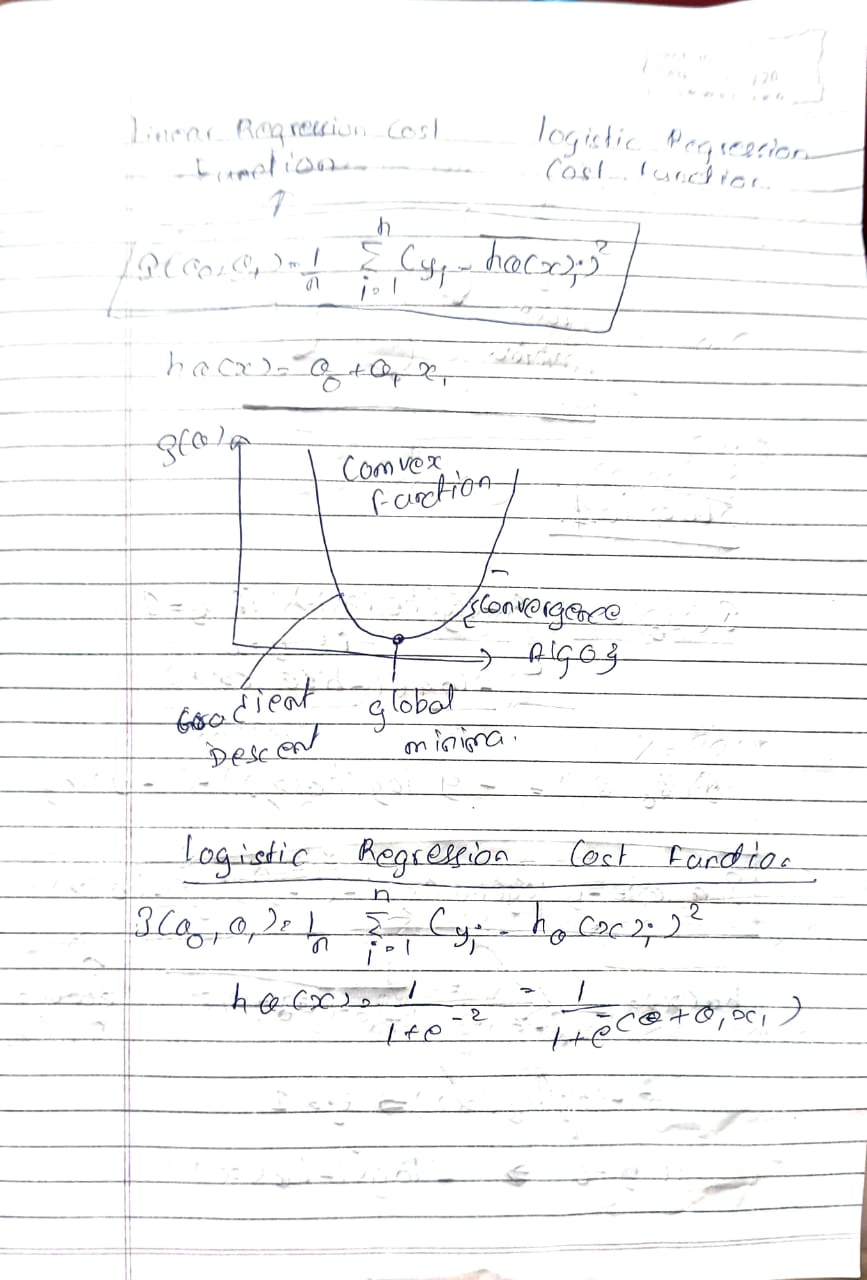 Linear Regression Cost
Function
logistic Regression
Cost function
J(θ₀, θ₁) = 1/n Σ i=1 n (yᵢ - hθ(x)ᵢ)²
hθ(x) = θ₀ + θ₁ x₁
J(θ)
Convex
function
Convergence
Algo
Gradient
Descent
global
minima.
Logistic Regression Cost Function
J(θ₀, θ₁) = 1/n Σ i=1 n (yᵢ - hθ(x)ᵢ)²
hθ(x) = 1/(1+e⁻ᶻ) = 1/(1+e⁻(θ+θ₁x₁))